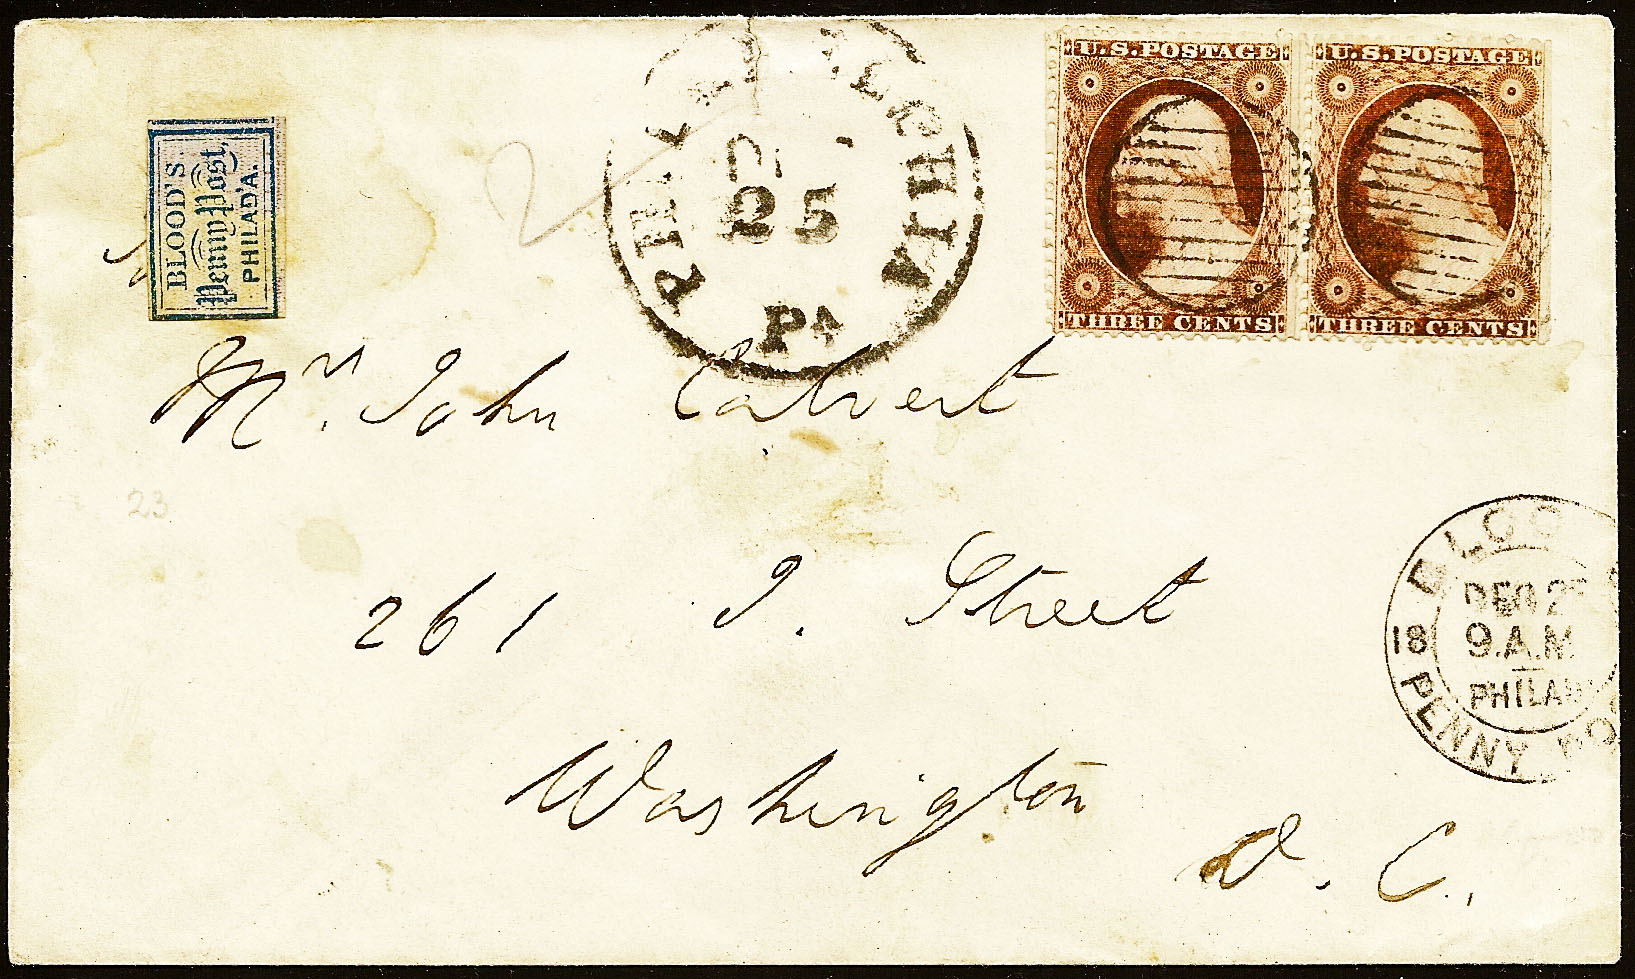 BLOOD'S
Penny Post,
PHILAD'A.
2
25
PA
U.S. POSTAGE
THREE CENTS
U.S. POSTAGE
THREE CENTS
Mr. John Calvert
23
261 I. Street
Washington
D. C.
DEC 2
18
9 A.M.
PHILAD
PENNY PO